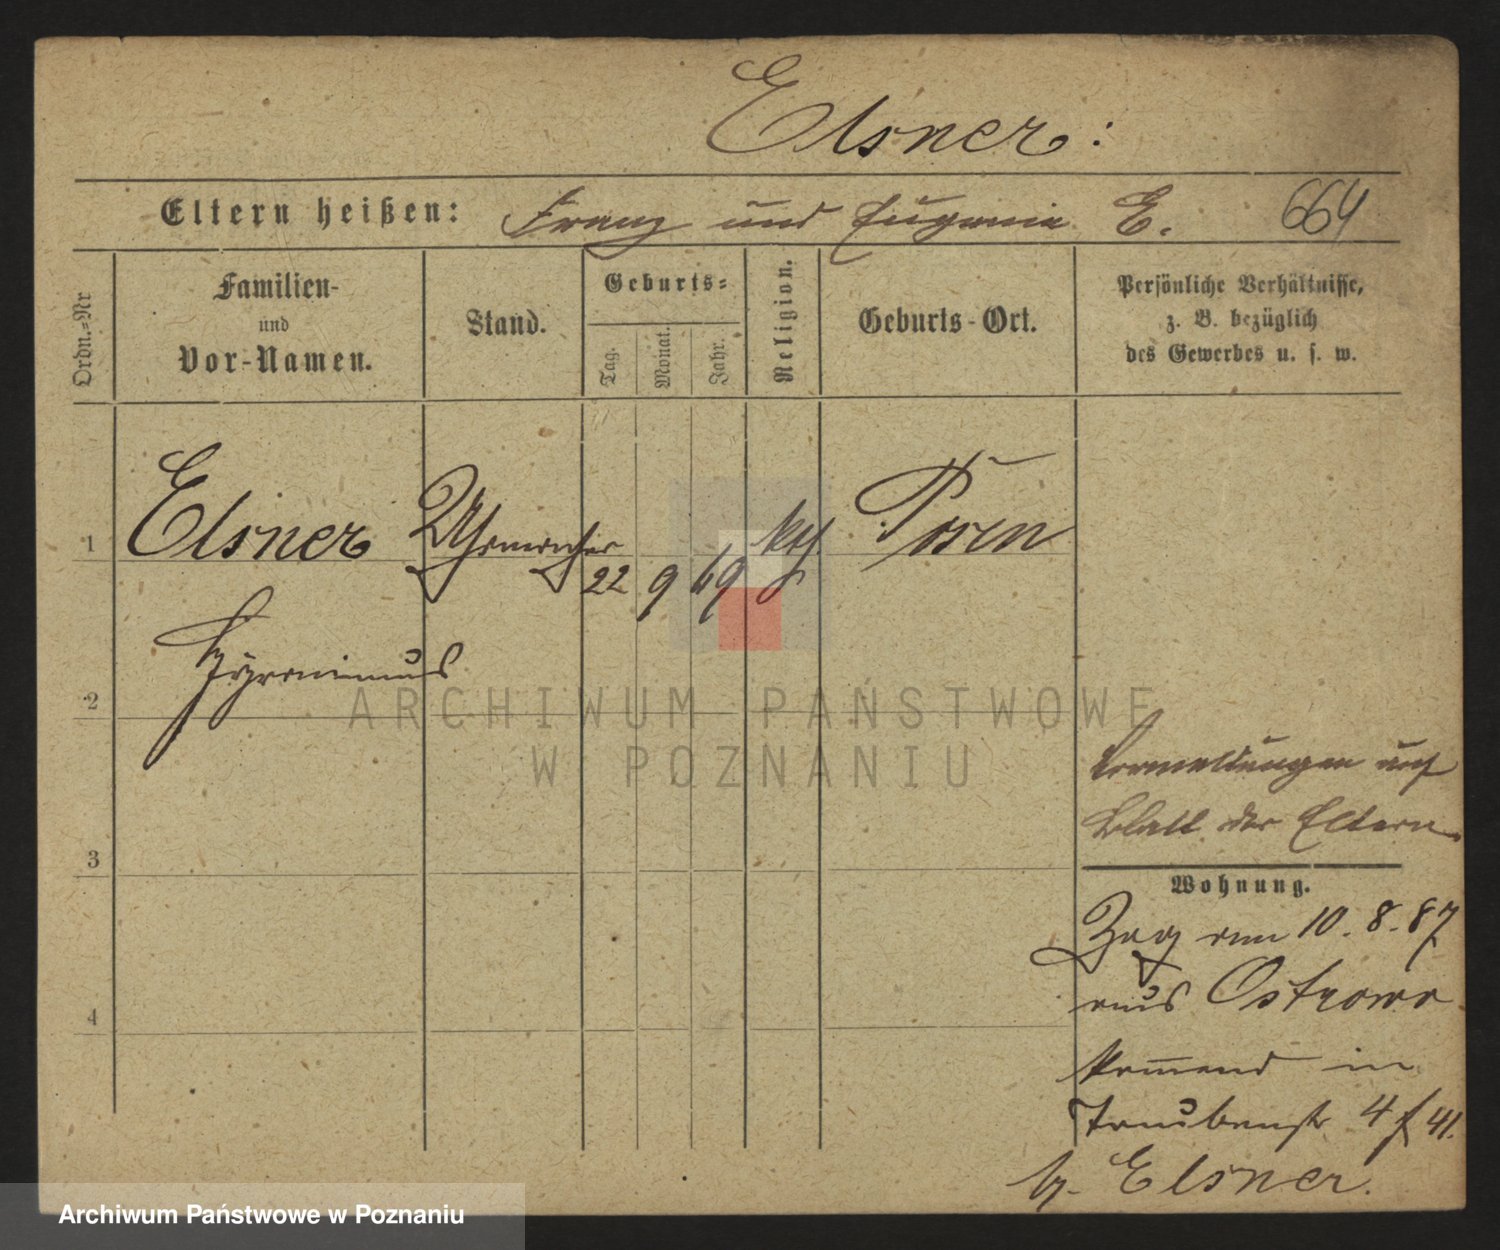 Elsner:
Eltern heißen: Franz und Eugenie E. 664
Ordn.=Nr
Familien-
und
Vor-Namen.
Stand.
Geburts=
Tag.
Monat.
Jahr.
Religion.
Geburts-Ort.
Persönliche Verhältnisse,
z. B. bezüglich
des Gewerbes u. s. w.
1 Elsner Uhrmacher 22 9 69 kth Posen
Hyronimus
2
ARCHIWUM PAŃSTWOWE
W POZNANIU
Vermeldungen auf
Blatt der Eltern.
3
Wohnung.
Zog am 10. 8. 87
aus Ostrowo
kom̄end in
Taubenstr 4
4
b. Elsner.
Archiwum Państwowe w Poznaniu